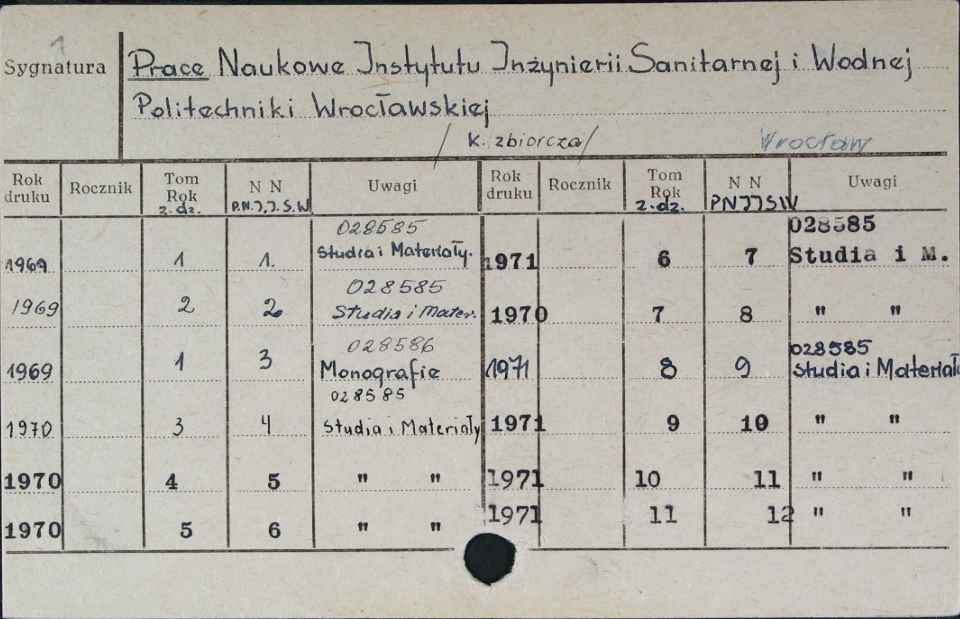 1
Sygnatura
Prace Naukowe Instytutu Inżynierii Sanitarnej i Wodnej
Politechniki Wrocławskiej
/K. zbiorcza/ Wrocław
Rok druku Rocznik Tom Rok z. dz. N N P.N.I.I.S.W Uwagi Rok druku Rocznik Tom Rok z. dz. N N PNIISW Uwagi
1969 1 1. 028585 Studia i Materiały. 1971 6 7 028585 Studia i M.
1969 2 2 028585 Studia i Mater. 1970 7 8 " "
1969 1 3 028586 Monografie 1971 8 9 028585 Studia i Materiały
1970 3 4 028585 Studia i Materiały 1971 9 10 " "
1970 4 5 " " 1971 10 11 " "
1970 5 6 " " 1971 11 12 " "